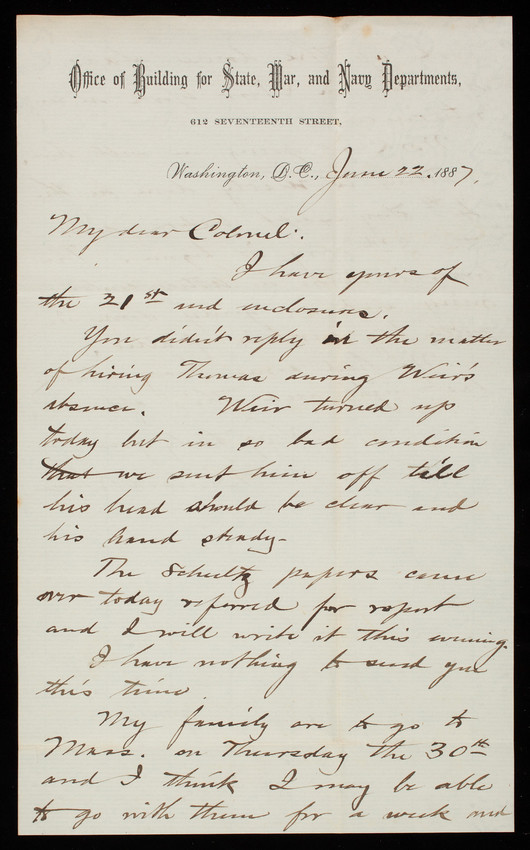 Office of Building for State, War, and Navy Departments,
612 SEVENTEENTH STREET,
Washington, D.C., June 22. 1887,
My dear Colonel:
I have yours of
the 21st and enclosures.
You didn't reply in the matter
of hiring Thomas during Weir's
absence. Weir turned up
today but in so bad condition
that we sent him off till
his head should be clear and
his hand steady-
The Schultz papers came
over today referred for report
and I will write it this evening.
I have nothing to send you
this time.
My family are to go to
Mass. on Thursday the 30th
and I think I may be able
to go with them for a week and